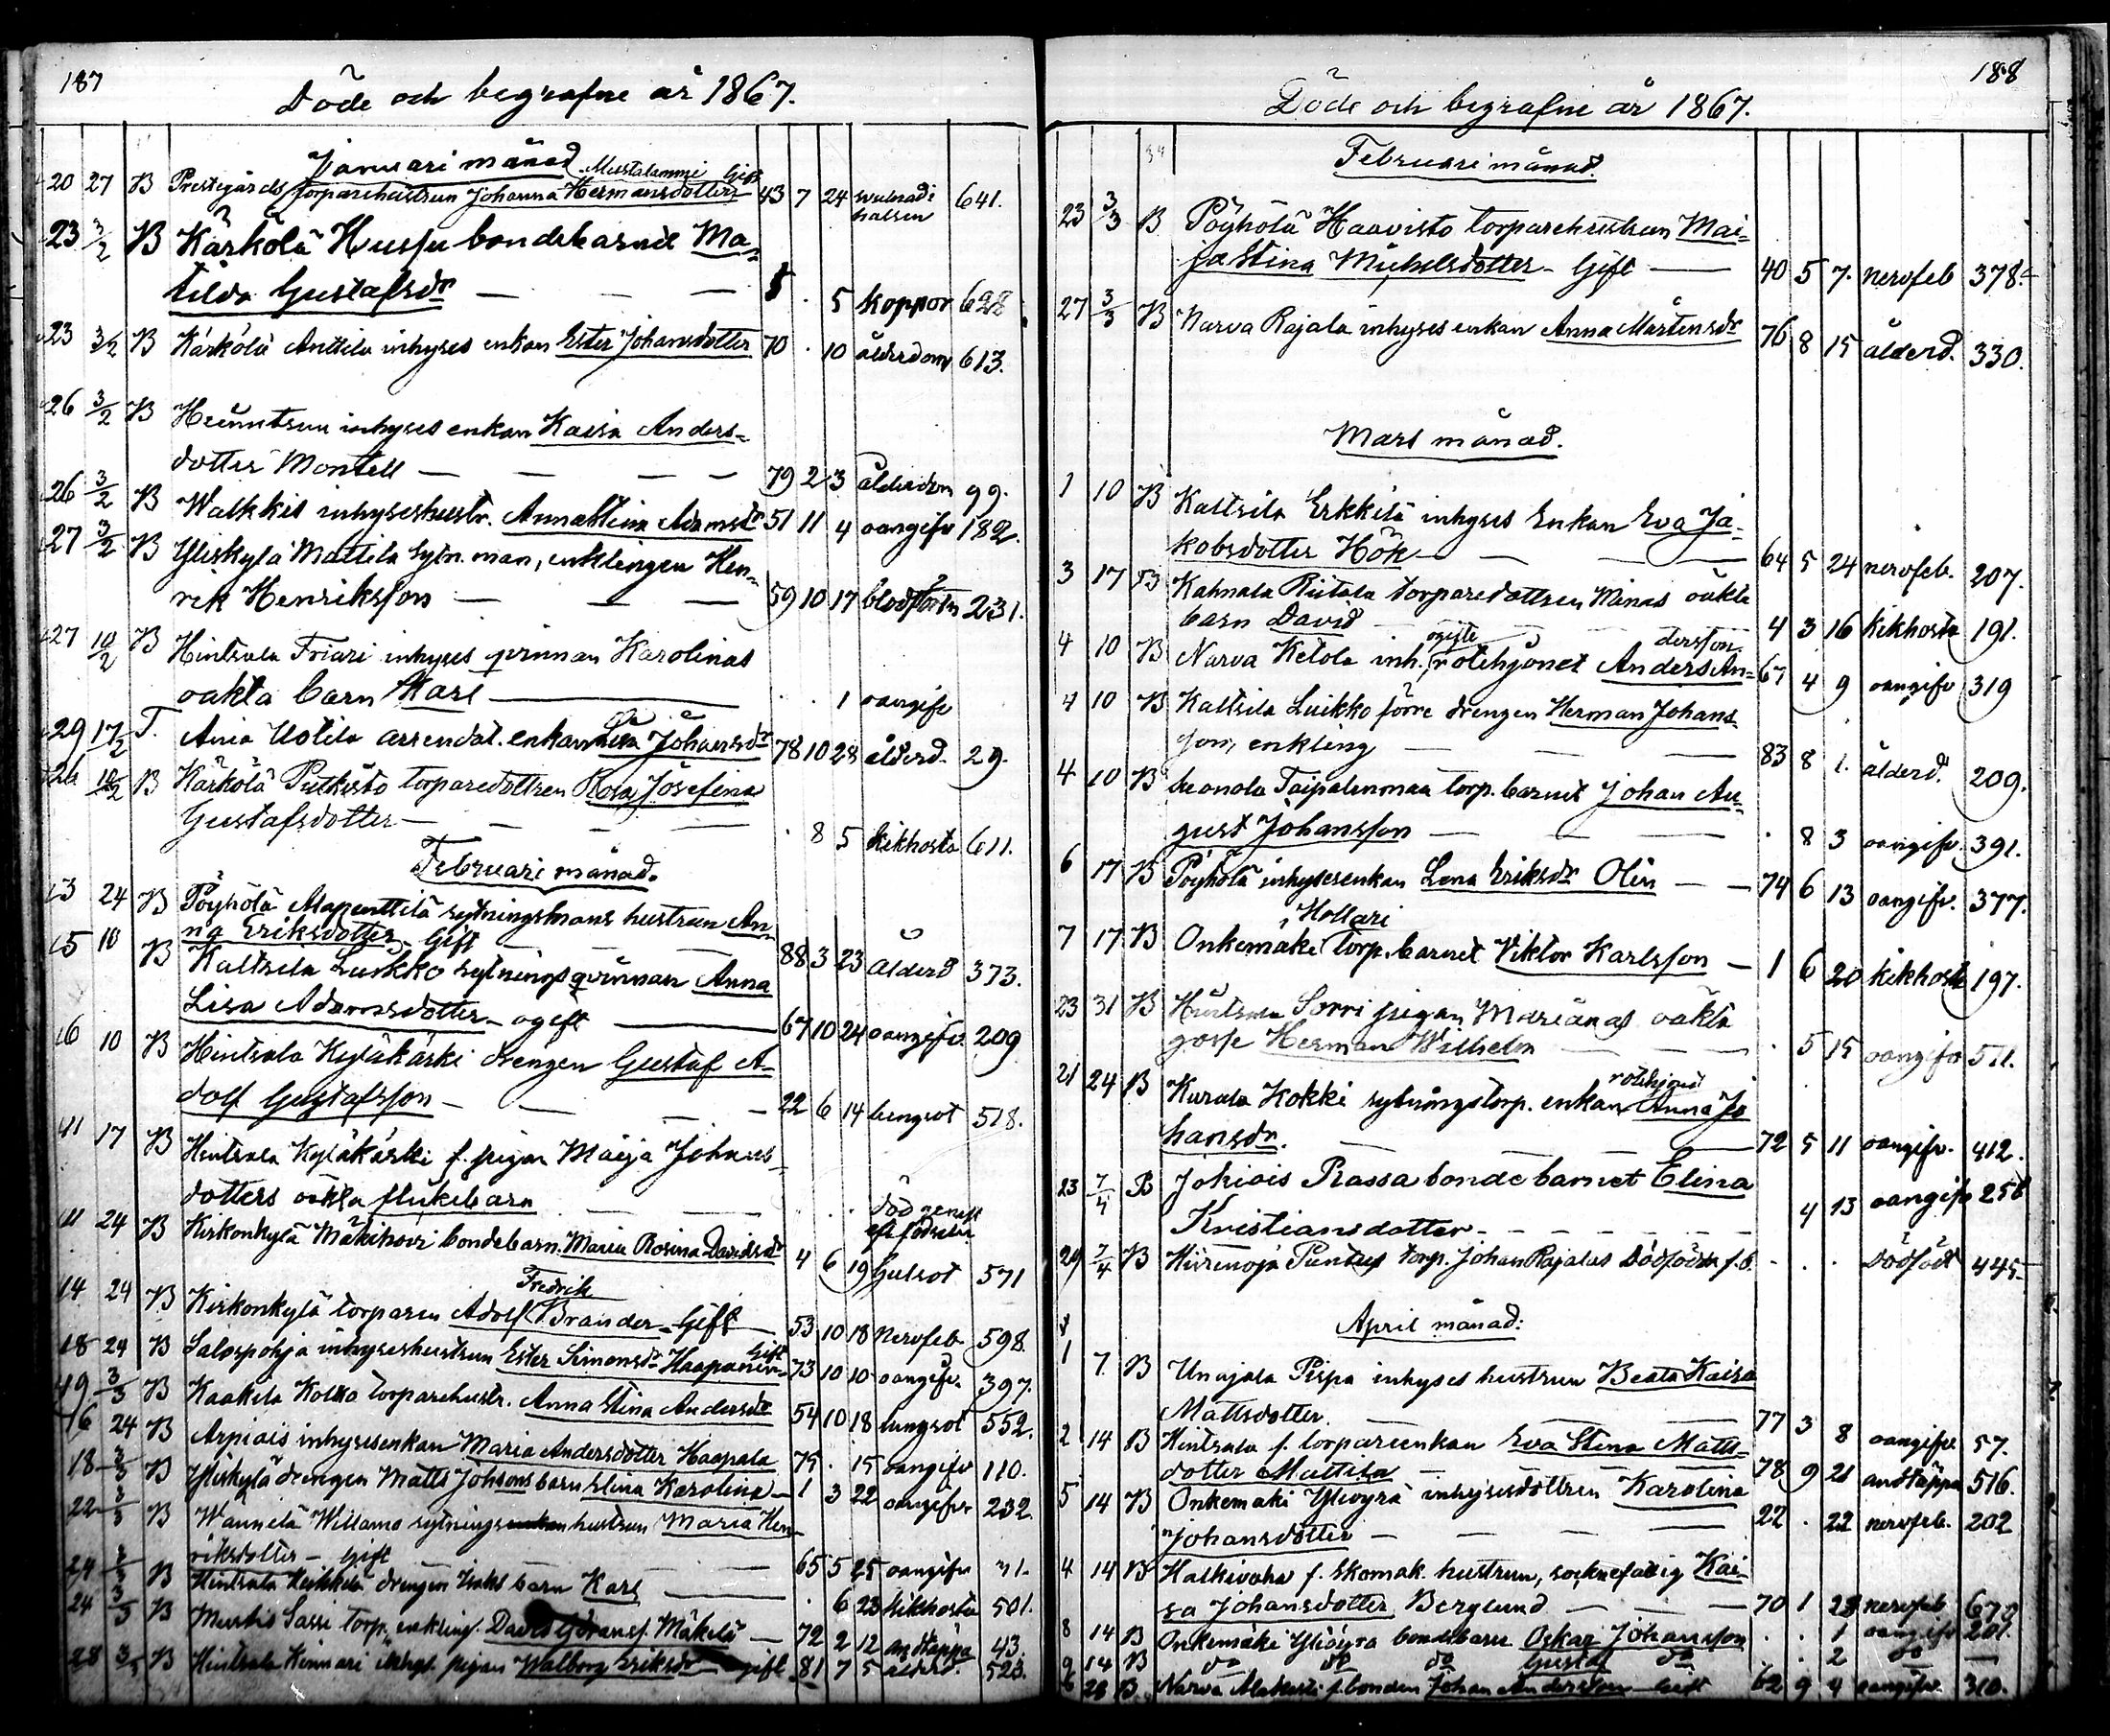 187
Döde och begrafne år 1867.
Januari månad
Mustalammi Gift
20 27 B Prestegårds torparehustrun Johanna Hermansdotter 43 7 24 641.
halsen
23 3/2 B Kärkölä Hussu bondebarnet Ma-
tilda Gustafsdr — — — 5 koppor 628
23 3/2 B Kärkölä Anttila inhyses enkan Ester Johansdotter 70 . 10 ålderdom 613.
26 3/2 B inhyses enkan Kaisa Anders-
dotter Montell — — — — 79 2 3 ålderdom 99.
26 3/2 B inhyseshustr. Anna Stina Adamsdr 51 11 4 oangifv 182.
27 3/2 B Yliskylä Mattila sytn. man, enklingen Hen-
rik Henriksson — — — 59 10 17 231.
27 10/2 B Hintsala Friari inhyses qvinnan Karolinas
oäkta barn Karl — . . 1 oangifv
29 17/2 T. Ania Uotila arrendat. enkan Johansdr 78 10 28 ålderd. 29.
26 10/2 B Kärkölä torparedottren Rosa Josefina
Gustafsdotter — — — — . 8 5 kikhosta 611.
Februari månad.
3 24 B Pöyhölä Alapenttilä sytningsmans hustrun An-
na Eriksdotter, Gift — — 88 3 23 Ålderd 373.
5 10 B Kaltsila Luikko sytningsqvinnan Anna
Lisa Adamsdotter – ogift — 67 10 24 oangifv. 209
6 10 B Hintsala Kyläkärki drengen Gustaf A-
dolf Gustafsson — — — 22 6 14 lungsot 518.
11 17 B Hintsala Kyläkärki f. pigan Maija Johans-
dotters oäkta flickebarn — — . . . död genast
eft födseln
11 24 B Kirkonkylä Mäkihovi bondebarn. Maria Rosina Davidsdr 4 6 19 Gulsot 571
Fredrik
14 24 B Kirkonkylä torparen Adolf Brander – Gift — 53 10 18 Nervfeb. 598.
Gift
18 24 B Salospohja inhyseshustrun Ester Simonsdr Haapanen 73 10 10 oangifv. 397.
19 3/3 B Kaakila Kolko torparehustr. Anna Stina Andersdr 54 10 18 lungsot 552.
16 24 B Arpiais inhysesenkan Maria Andersdotter Haapala 75 . 15 oangifv 110.
18 3/3 B Yliskylä drengen Matts Johsons barn Elina Karolina — 1 3 22 oangifv 232.
22 3/3 B Wännelä Willamo sytnings hustrun Maria Hen-
riksdotter – Gift — 65 5 25 oangifv 31.
24 3/3 B Hintsala Heikkilä drengen Isaks barn Karl — . 6 23 kikhosta 501.
24 3/3 B Murkis Sassi torp. enkling. David Mäkelä — 72 2 12 andtäppa 43.
28 3/3 B Hintsala Kinnari pigan Walborg Eriksdr ogift 81 7 5 ålderd. 523.
188
Döde och begrafne år 1867.
Februari månad.
23 3/3 B Pöyhölä Haavisto torparehustrun Mai-
ja Stina Michelsdotter – Gift — 40 5 7. nervfeb 378.
27 3/3 B Narva Rajala inhyses enkan Anna Mårtensdr 76 8 15 ålderd. 330.
Mars månad.
1 10 B Kaltsila Erkkilä inhyses Enkan Eva Ja-
kobsdotter Hök — — — 64 5 24 nervfeb. 207.
3 17 B torparedottren Minas oäkta
barn David — — — 4 3 16 kikhosta 191.
ogifte dersson.
4 10 B Narva Ketola inh., rotehjonet Anders An- 67 4 9 oangifv 319
4 10 B Kaltsila Luikko förre drengen Herman Johans-
son, enkling — — — 83 8 1. ålderd. 209.
4 10 B Leonola Taipalenmaa torp. barnet Johan Au-
gust Johansson — — — . 8 3 oangifv. 391.
6 17 B Pöyhölä inhysesenkan Lena Eriksdr Olin — — 74 6 13 oangifv. 377.
Hollari
7 17 B Onkemäki torp. barnet Viktor Karlsson — 1 6 20 kikhosta 197.
23 31 B Hintsala Sorri pigan Marianas oäkta
gosse Herman Wilhelm — — — . 5 15 oangifv 511.
rotehjonet
21 24 B Kurala Kokki sytningstorp. enkan Anna Jo
hansdr. — — — 72 5 11 oangifv. 412.
23 7/4 B Jokiois Rassa bondebarnet Elina
Kristiansdotter. — — — 4 13 oangifv 256
29 7/4 B torp. Johan Rajalas Dödfödda f.b. . . . Dödfödt 445
April månad:
1 7. B Unajala Pispa inhyses hustrun Beata Kaisa
Mattsdotter. — — 77 3 8 oangifv. 57.
2 14 B Hintsala f. torpareenkan Eva Stina Matts-
dotter Mattila — — — 78 9 21 andtäppa 516.
5 14 B Onkemäki inhysesdottren Karolina
Johansdotter — — — 22 . 22 nervfeb. 202
4 14 B Halkivaha f. skomak. hustrun, Kai-
sa Johansdotter Berglund — — 70 1 23 nervfeb 675
8 14 B Onkemäki bondebarn Oskar Johansson . . 1 oangifv 201.
9 14 B do do do Gustaf do . . 2 do —
6 28 B Narva f. bonden Johan Andersson Gift 62 9 4 oangifv. 310.